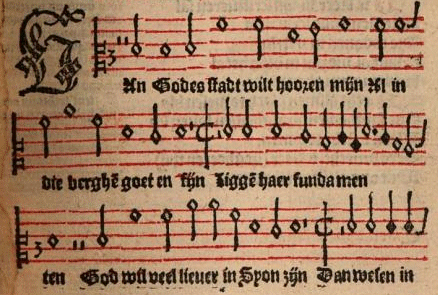 VAn Godes stadt wilt hooren mijn Al in
die berghē goet en fijn Liggē haer fundamen
ten God wil veel lieuer in Syon zijn Dan wesen in